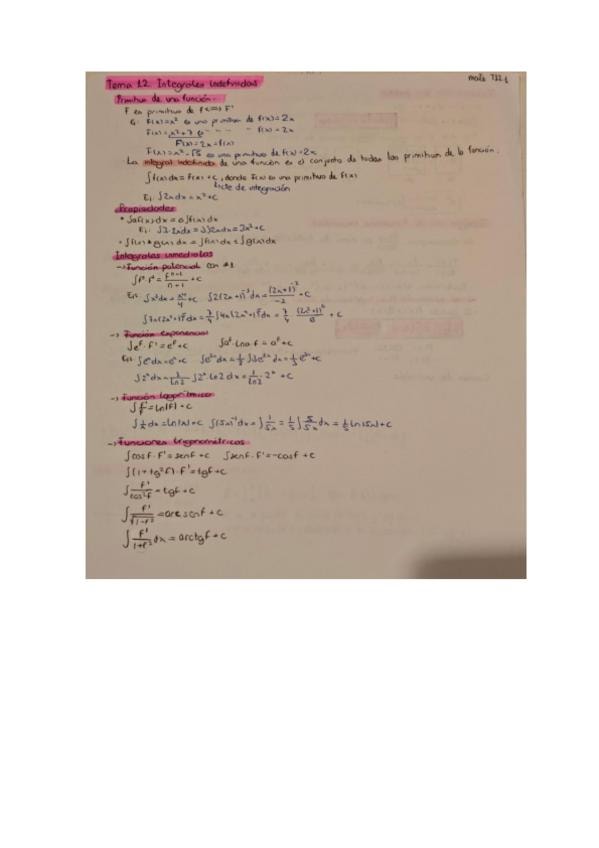 Tema 12. Integrales indefinidas
Primitiva de una función.
F es primitiva de f <=> F'
Ej: F(x)=x² es una primitiva de f(x)=2x
F(x)=x²+7 es " " " f(x)=2x
F'(x)=2x=f(x)
F(x)=x²-√5 es una primitiva de f(x)=2x
La integral indefinida de una función es el conjunto de todas las primitivas de la función.
∫f(x)dx=F(x)+C, donde F(x) es una primitiva de f(x)
cte de integración
Ej: ∫2xdx=x²+C
Propiedades
∫af(x)dx=a∫f(x)dx
Ej: ∫3·2xdx=3∫2xdx=3x²+C
∫f(x)±g(x)dx=∫f(x)dx±∫g(x)dx
Integrales inmediatas
-> Función potencial con ≠1
∫fⁿ·f'=fⁿ⁺¹/n+1+C
Ej: ∫x³dx=x⁴/4+C ∫2(2x+1)⁻³dx=(2x+1)⁻²/-2+C
-> Función exponencial
∫eᶠ·f'=eᶠ+C ∫aᶠ·lna·f'=aᶠ+C
∫2ˣdx=1/ln2∫2ˣ·ln2dx=1/ln2·2ˣ+C
-> Función logarítmica
∫f'/f=ln|f|+C
∫1/x dx=ln|x|+C ∫(5x)⁻¹dx=∫1/5x=1/5∫5/5x dx=1/5 ln|5x|+C
-> Funciones trigonométricas
∫cosf·f'=senf+C ∫senf·f'=-cosf+C
∫(1+tg²f)·f'=tgf+C
∫f'/cos²f=tgf+C
∫f'/√1-f²=arcsenf+C
∫f'/1+f² dx=arctgf+C